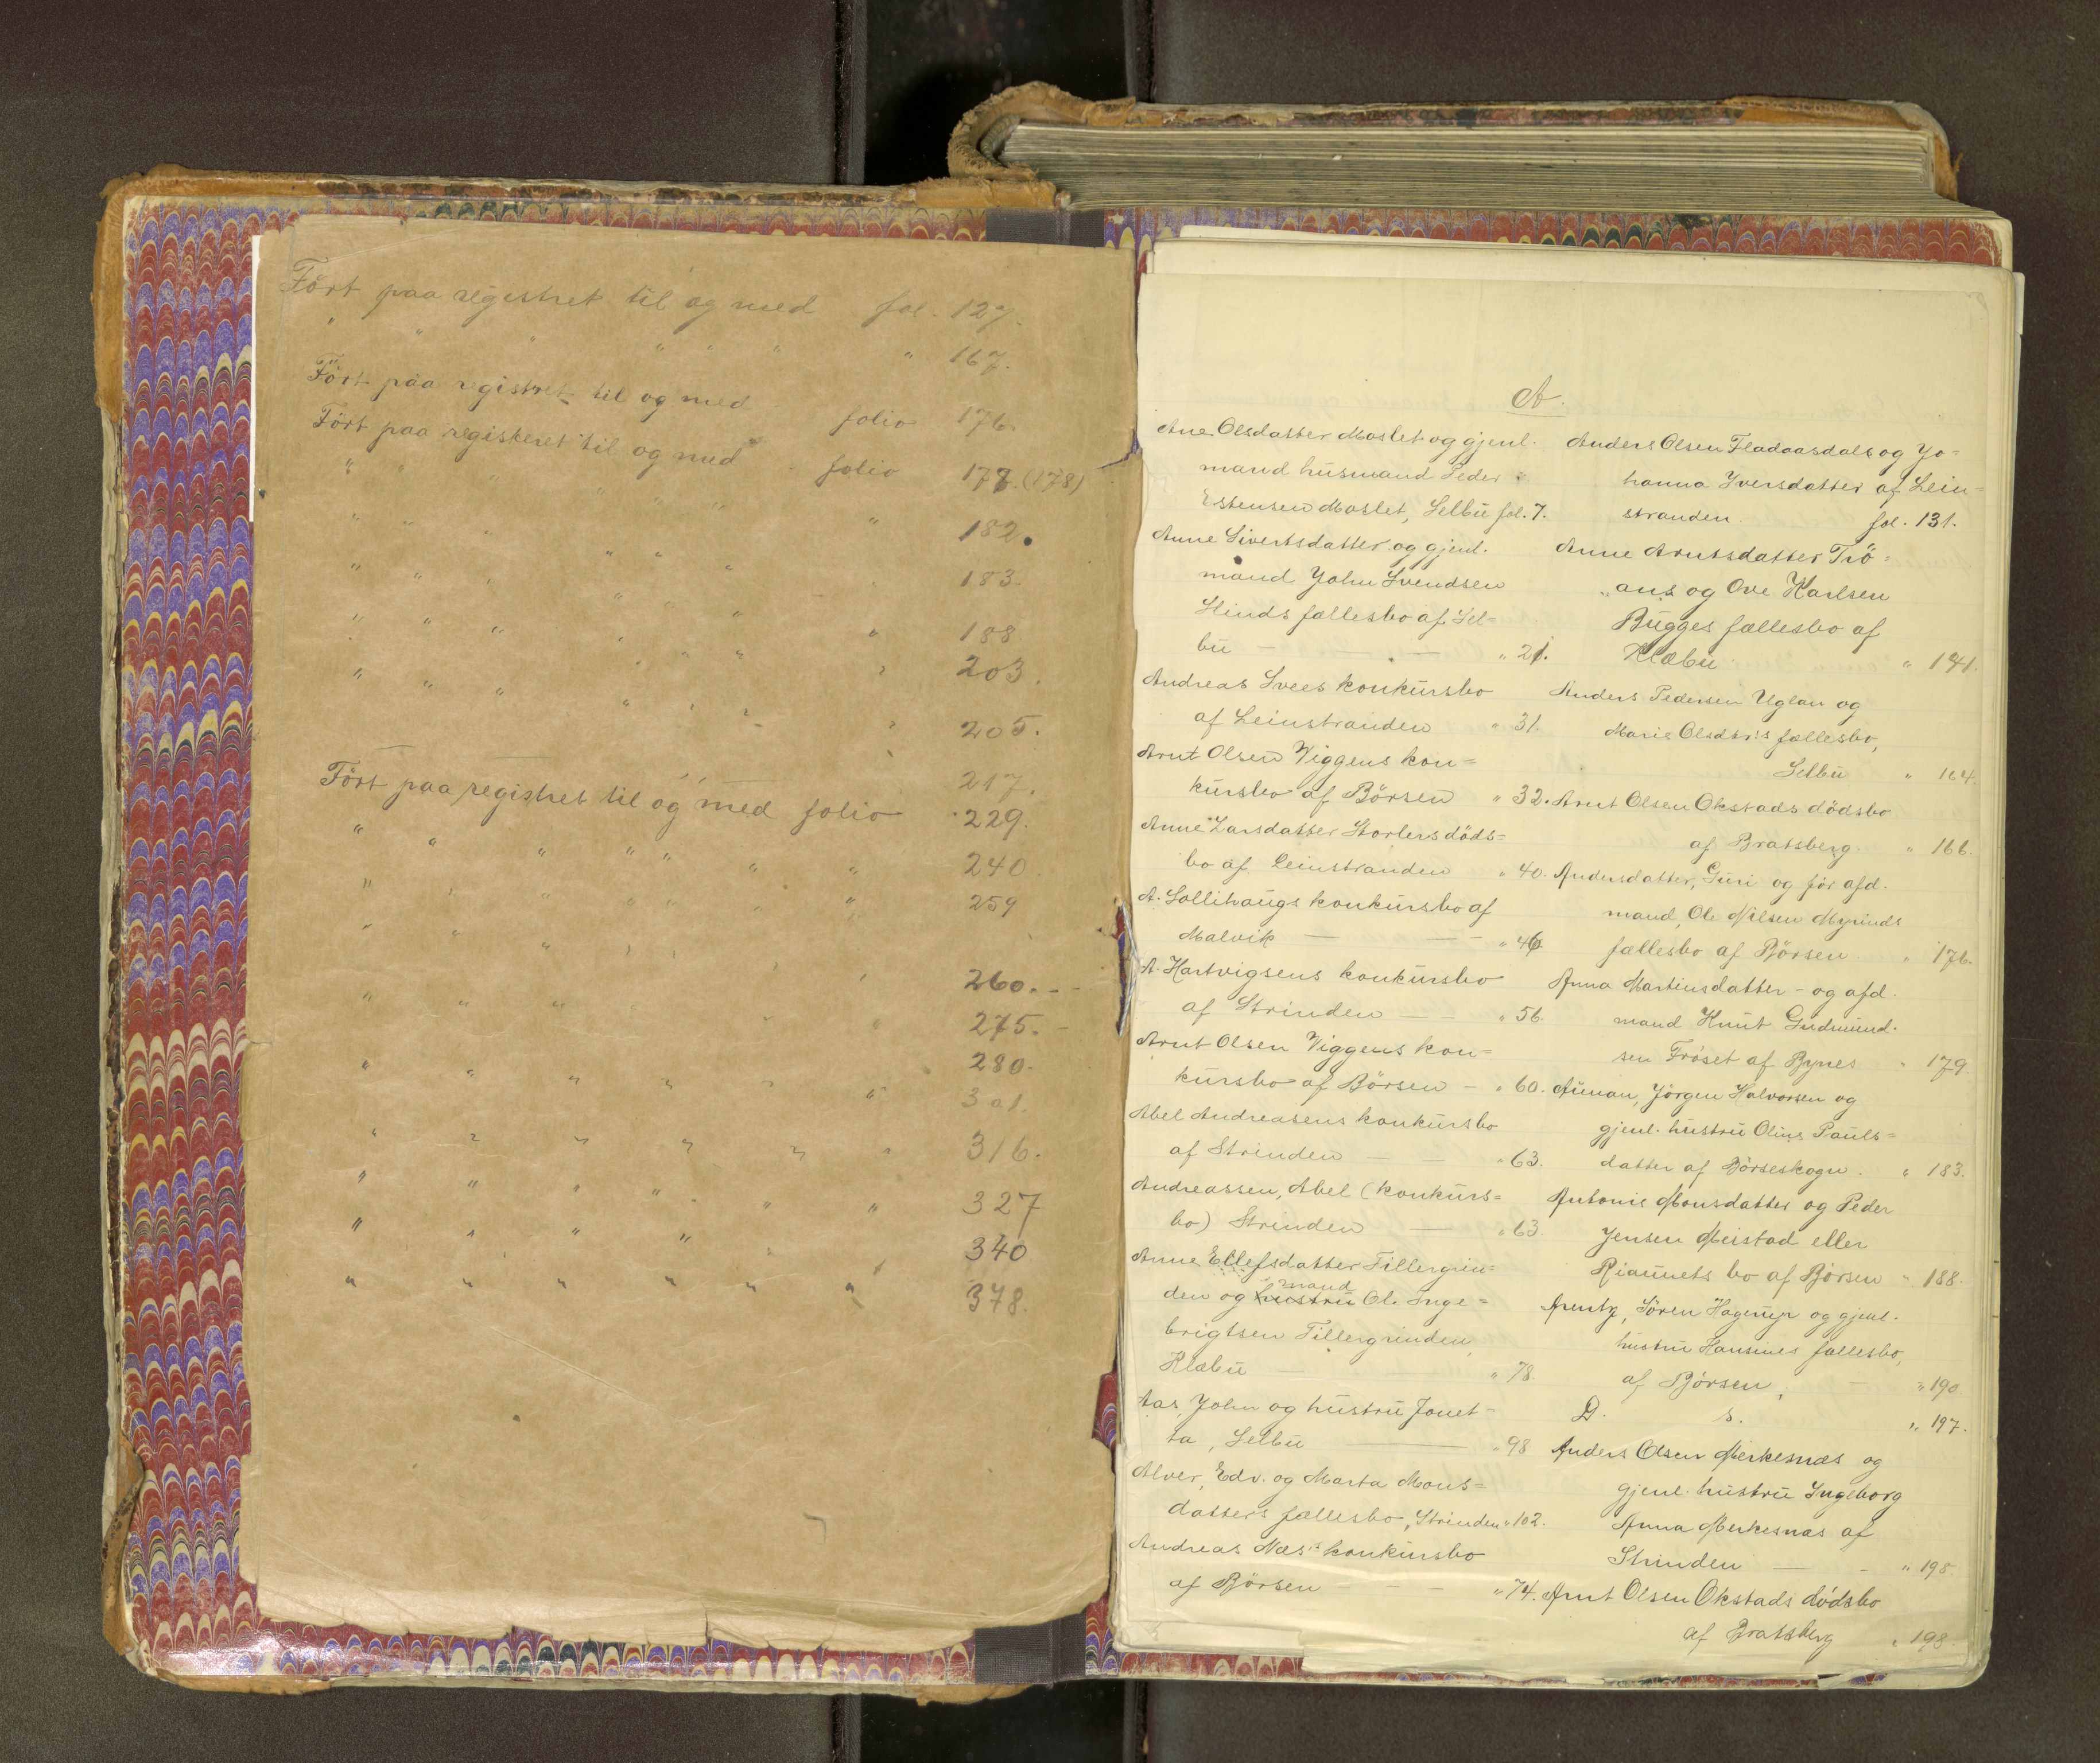 Ført paa registret til og med fol. 127.
" " " " " " " 167.
Ført paa registret til og med folio 176.
Ført paa registeret til og med - folio 177. (178)
" " " " " " " 182.
" " " " " " 183.
" " " " " " " 188
" " " " " " " 203.
" " " " " " " 205.
217.
Ført paa registret til og med folio 229.
" " " " " " " 240.
" " " " " " " 259
" " " " " " " 260.
" " " " " " 275.
280.
" " " " " " 301.
" " " " " " 316.
" " " " " " 327
" " " " " " 340
" " " " " " 378.
A.
Ane Olsdatter Moslet og gjenl.
mand husmand Peder
Estensen Moslet, Selbu fol. 7.
Anne Sivertsdatter og gjenl.
mand John Svendsen
Slinds fællesbo af Sel=
bu — — " 21.
Andreas Svees konkursbo
af Leinstranden " 31.
Arnt Olsen Viggens kon=
kursbo af Börsen " 32.
Anne Larsdatter Storlers döds=
bo af Leinstranden " 40.
A. Sollihaugs konkursbo af
Malvik — — " 46
A. Hartvigsens konkursbo
af Strinden — " 56.
Arnt Olsen Viggens kon=
kursbo af Börsen — " 60.
Abel Andreasens konkursbo
af Strinden — — " 63.
Andreassen, Abel (konkurs=
bo) Strinden — " 63.
Anne Ellefsdatter Tillergrin=
mand
den og hustru Ole Inge=
brigtsen Tillergrinden,
Klæbu — " 78
Aas, John og hustru Jonet=
ta, Selbu — " 98
Alver, Edv. og Marta Mons=
datters fællesbo, Strinden " 102.
Andreas Næs's konkursbo
af Börsen — — — " 74.
Anders Olsen Fladaasdals og Jo=
hanna Iversdatter af Lein=
stranden fol. 131.
Anne Arntsdatter Trö=
ans og Ove Karlsen
Bugges fællesbo af
Klæbu " 141.
Anders Pedersen Uglan og
Marie Olsdtr's fællesbo,
Selbu " 164.
Arnt Olsen Okstads dödsbo
af Bratsberg. " 166.
Andersdatter, Guri og før afd.
mand Ole Nilsen
fællesbo af Börsen " 176.
Anna Martinsdatter - og afd.
mand Knut Gudmund-
sen Frøset af Bynes " 179
Aunan, Jörgen Halvorsen og
gjenl. hustru Olines Pauls=
datter af Börseskogn. " 183.
Antonie Monsdatter og Peder
Jensen Meistad eller
bo af Børsen " 188.
Arentz, Sören Hagerup og gjenl.
hustru Hansines fællesbo,
af Børsen, — " 190.
D. s. " 197.
Anders Olsen Merkesnæs og
gjenl. hustru Ingeborg
Anna Merkesnæs af
Strinden — - " 198
Arnt Olsen Okstads dødsbo
af Bratsberg " 198.